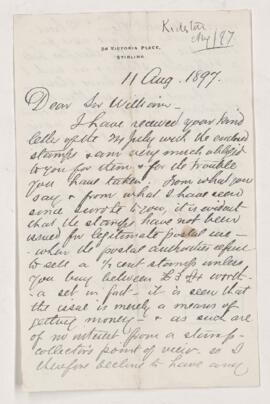 Kidston
Aug/97
24 VICTORIA PLACE,
STIRLING.
11 Aug. 1897.
Dear Sir William –
I have received your kind
letter of the July with the enclosed
stamps & am very much obliged
to you for them & for the trouble
you have taken. From what you
say & from what I have seen
since I wrote to you, it is evident
that the stamps have not been
issued for legitimate postal use –
when the postal authorities refuse
to sell a ½ cent stamp unless
you buy between £3 & 4 worth
– a set in fact – it is seen that
the issue is merely a means of
getting money – & as such are
of no interest from a stamp-
collector's point of view. So I
therefore decline to have any